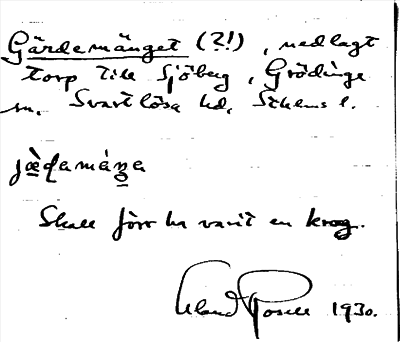 Gärdemånget (?!), nedlagt
torp till Sjöberg, Grödinge
sn. Svartlösa hd, Sthlms l.
Skall förr ha varit en krog.
Erland Rosell 1930.